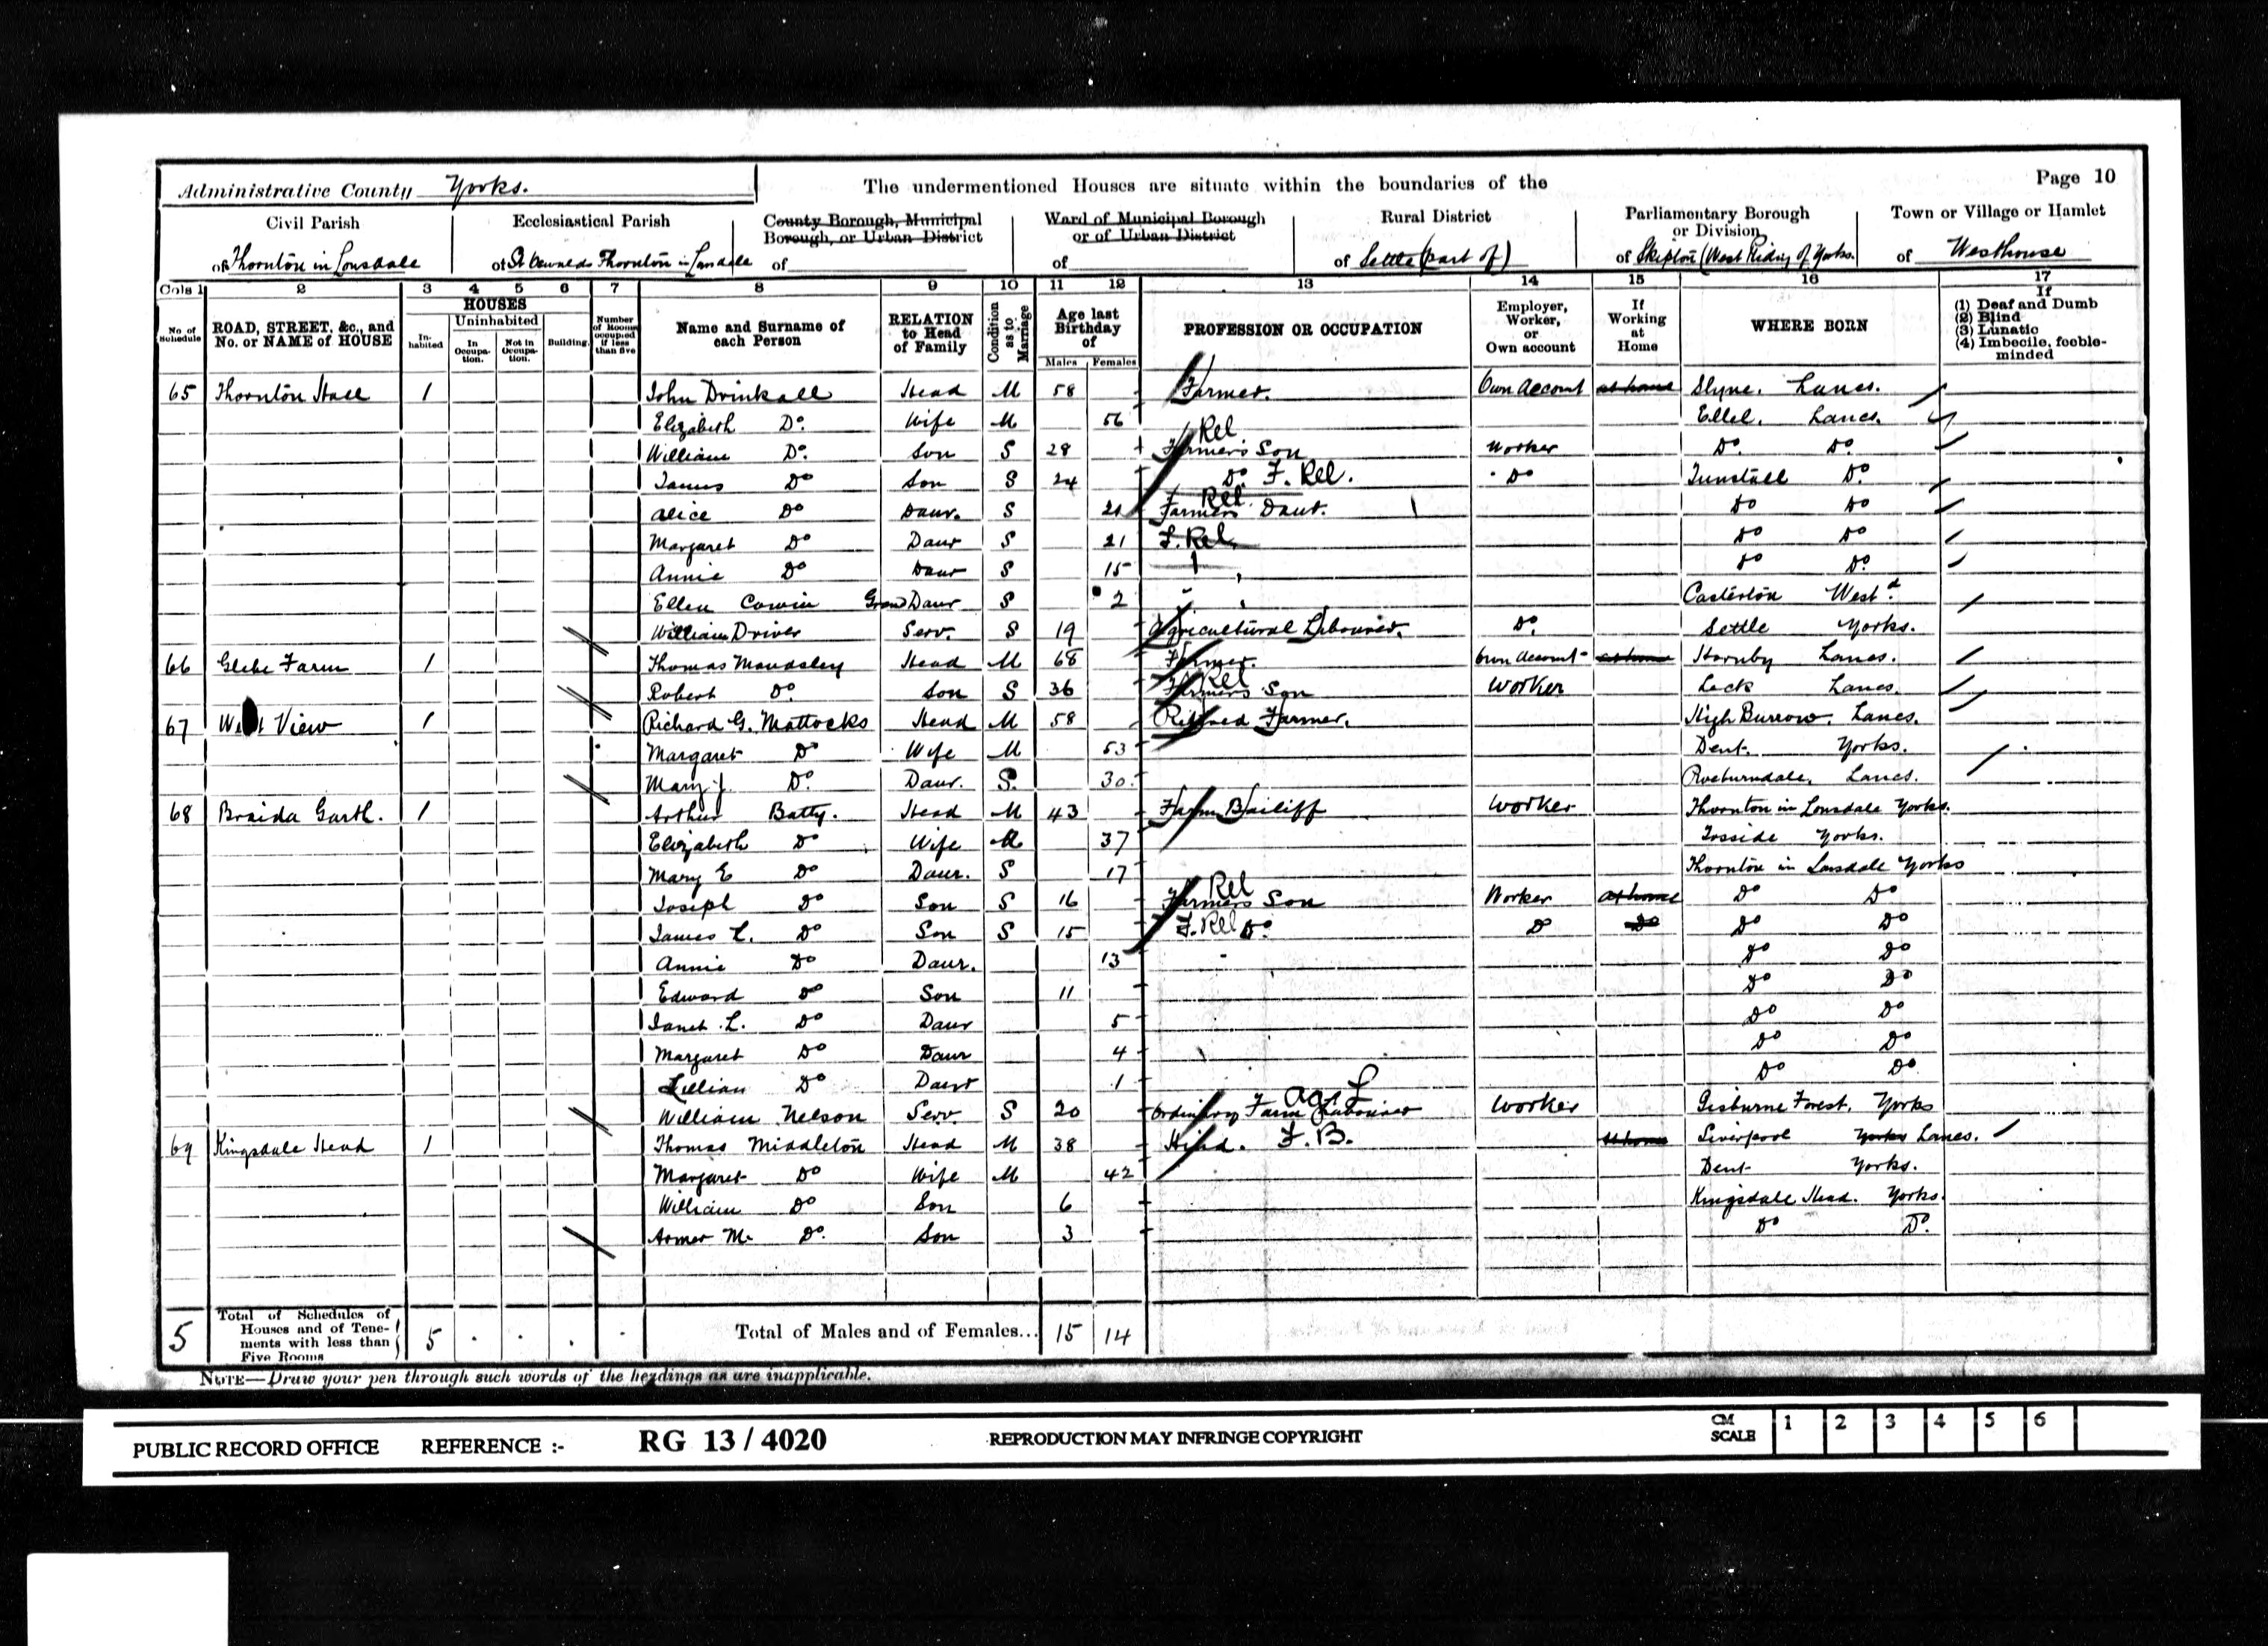 Administrative County Yorks. The undermentioned Houses are situate within the boundaries of the Page 10
Civil Parish Ecclesiastical Parish County Borough, Municipal Borough, or Urban District Ward of Municipal Borough or of Urban District Rural District Parliamentary Borough or Division Town or Village or Hamlet
of Thornton in Lonsdale of St Thornton in Lonsdale of of of Settle (part of) of Skipton (West Riding of Yorks. of Westhouse
Cols 1 2 3 4 5 6 7 8 9 10 11 12 13 14 15 16 17
No. of Schedule ROAD, STREET, &c., and No. or NAME of HOUSE HOUSES Inhabited Uninhabited In Occupation. Not in Occupation. Building. Number of Rooms occupied if less than five Name and Surname of each Person RELATION to Head of Family Condition as to Marriage Age last Birthday of Males Females PROFESSION OR OCCUPATION Employer, Worker, or Own account If Working at Home WHERE BORN If (1) Deaf and Dumb (2) Blind (3) Lunatic (4) Imbecile, feeble-minded
65 Thornton Hall 1 John Drinkall Head M 58 Farmer. Own Account at home Slyne. Lancs.
Elizabeth Do. Wife M 56 Ellel. Lancs.
William Do. Son S 28 Farmers Son Rel Worker Do. Do.
James Do Son S 24 Do F. Rel. Do Tunstall Do.
Alice Do Daur. S 21 Farmers Daur. Rel Do Do
Margaret Do Daur S 21 F. Rel. Do Do
Annie Do Daur S 15 Do Do.
Ellen Cowin Grand Daur S 2 Casterton West.d
William Driver Serv. S 19 Agricultural Labourer. Do. Settle Yorks.
66 Glebe Farm 1 Thomas Moudsley Head M 68 Farmer. Own Account at home Hornby Lancs.
Robert Do. Son S 36 Farmers Son Rel Worker Leck Lancs.
67 View 1 Richard G. Mattocks Head M 58 Retired Farmer. High Burrow. Lancs.
Margaret Do Wife M 53 Dent. Yorks.
Mary J. Do. Daur. S. 30. Roeburndale. Lancs.
68 Braida Garth. 1 Arthur Batty. Head M 43 Farm Bailiff Worker Thornton in Lonsdale Yorks.
Elizabeth Do Wife M 37 Tosside Yorks.
Mary E Do Daur. S 17 Thornton in Lonsdale Yorks
Joseph Do Son S 16 Farmers Son Rel Worker at home Do Do
James L. Do Son S 15 F. Rel Do. Do Do Do Do
Annie Do Daur. 13 Do Do
Edward Do Son 11 Do Do
Janet L. Do Daur 5 Do Do
Margaret Do Daur 4 Do Do
Lillian Do Daur 1 Do Do
William Nelson Serv. S 20 Ordinary Farm Labourer Ag. L Worker Gisburne Forest. Yorks
69 Kingsdale Head 1 Thomas Middleton Head M 38 Hind. F. B. at home Liverpool Yorks Lancs.
Margaret Do Wife M 42 Dent Yorks.
William Do Son 6 Kingsdale Head. Yorks.
Armer M. Do. Son 3 Do Do.
5 Total of Schedules of Houses and of Tenements with less than Five Rooms 5 Total of Males and of Females... 15 14
NOTE—Draw your pen through such words of the headings as are inapplicable.
PUBLIC RECORD OFFICE REFERENCE :- RG 13 / 4020 REPRODUCTION MAY INFRINGE COPYRIGHT CM SCALE 1 2 3 4 5 6